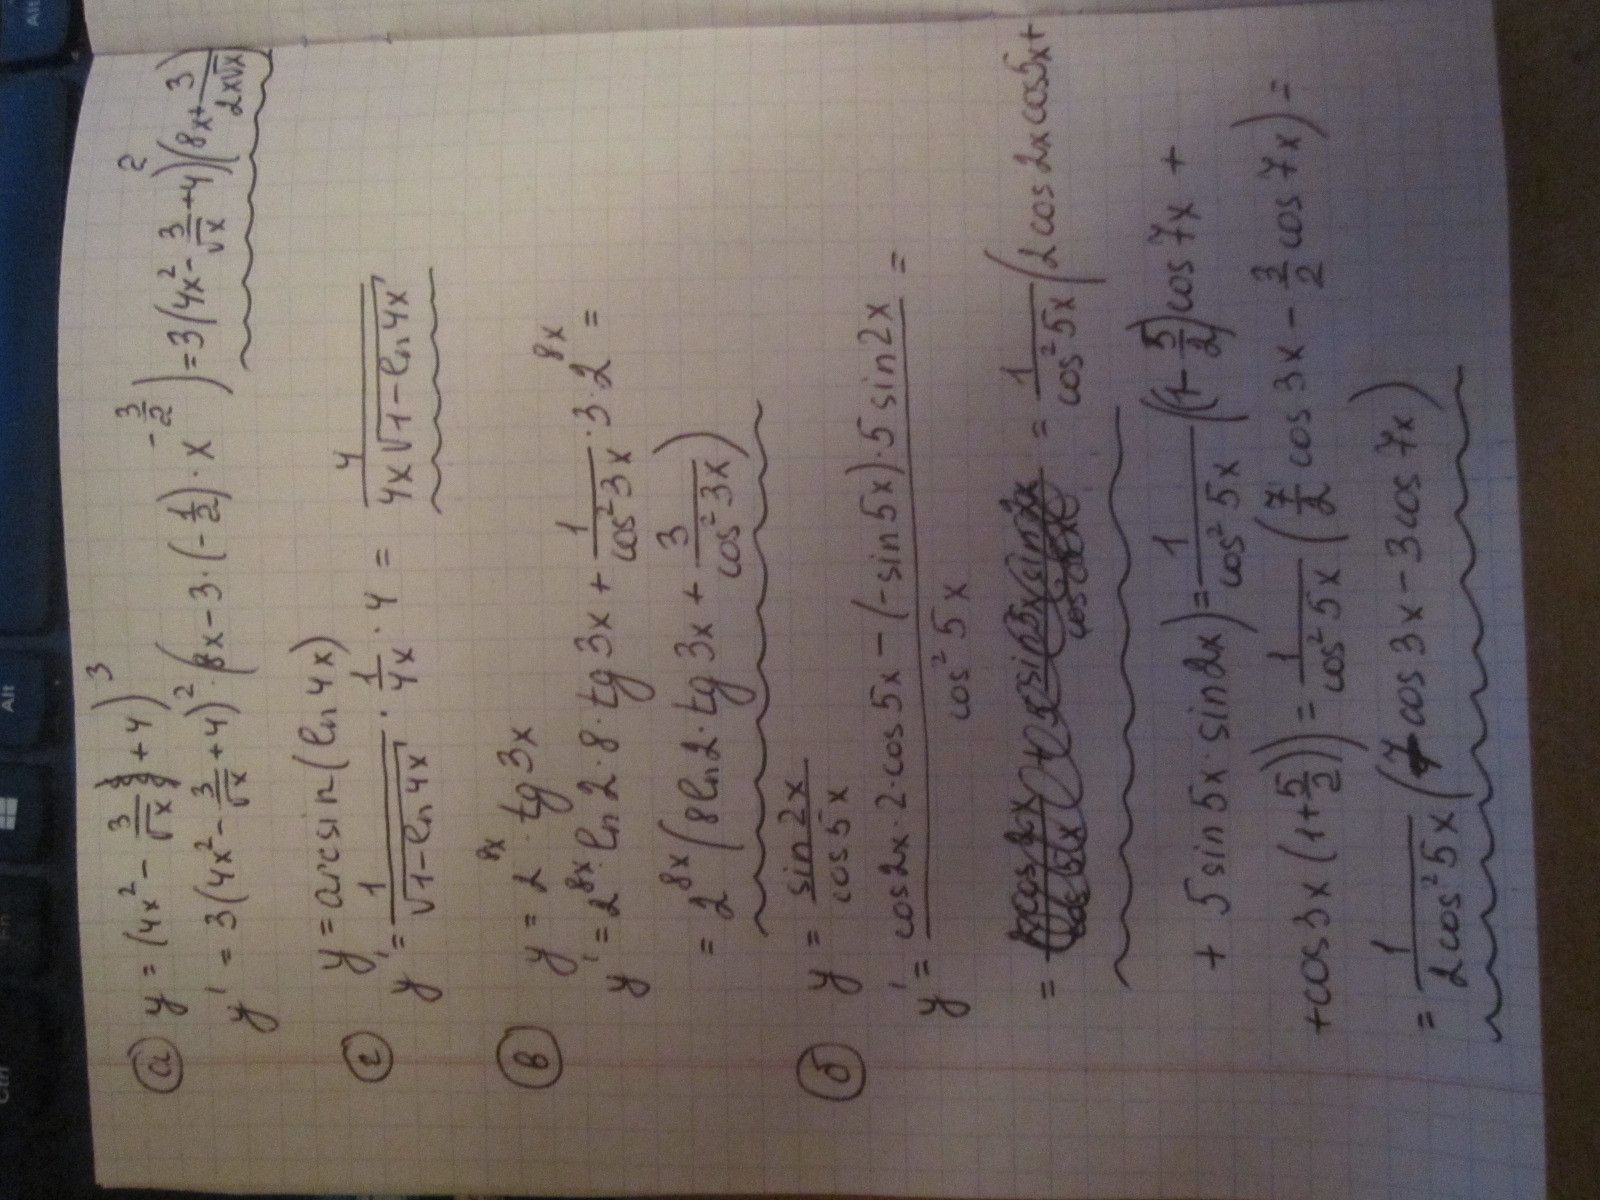 а) y = (4x² - 3/√x + 4)³
y' = 3(4x² - 3/√x + 4)² · (8x - 3 · (-1/2) · x^(-3/2)) = 3(4x² - 3/√x + 4)² (8x + 3/(2x√x))
г) y = arcsin(ln 4x)
y' = 1/√(1 - ln 4x) · 1/(4x) · 4 = 4/(4x√(1 - ln 4x))
в) y = 2^(8x) · tg 3x
y' = 2^(8x) · ln 2 · 8 · tg 3x + 1/(cos² 3x) · 3 · 2^(8x) =
= 2^(8x) (8 ln 2 · tg 3x + 3/(cos² 3x))
б) y = sin 2x/cos 5x
y' = (cos 2x · 2 · cos 5x - (-sin 5x) · 5 sin 2x)/(cos² 5x) =
= = 1/(cos² 5x) (2 cos 2x cos 5x +
+ 5 sin 5x · sin 2x) = 1/(cos² 5x) ((1 - 5/2) cos 7x +
+ cos 3x (1 + 5/2)) = 1/(cos² 5x) (7/2 cos 3x - 3/2 cos 7x) =
= 1/(2 cos² 5x) (7 cos 3x - 3 cos 7x)
Ctrl
Fn
Alt
Alt